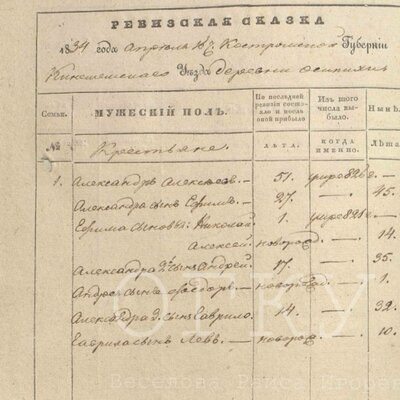 РЕВИЗСКАЯ СКАЗКА
1834 года Апреля Костромской Губернии
Кинешемскаго Уезда деревни
Семьи. МУЖЕСКІЙ ПОЛЪ. По последней ревизіи состояло и после оной прибыло Изъ этого числа выбыло. Нынѣ
№ ЛѢТА. КОГДА ИМЕННО. Лѣта
Крестьяне.
1. Александръ Алексеевъ — 51. умре 826 —
Александра сынъ Ефимъ — 27. — 45.
Ефима сыновья: Николай 1. умре 821 —
Алексей. новорож — 14.
Александра 2й сынъ Андрей. 17. — 35.
Андрея сынъ Федоръ — новорож — 1.
Александра сынъ Гаврило. 14. — 32.
Гаврила сынъ Левъ. — новорож. — 10.
ОГКУ